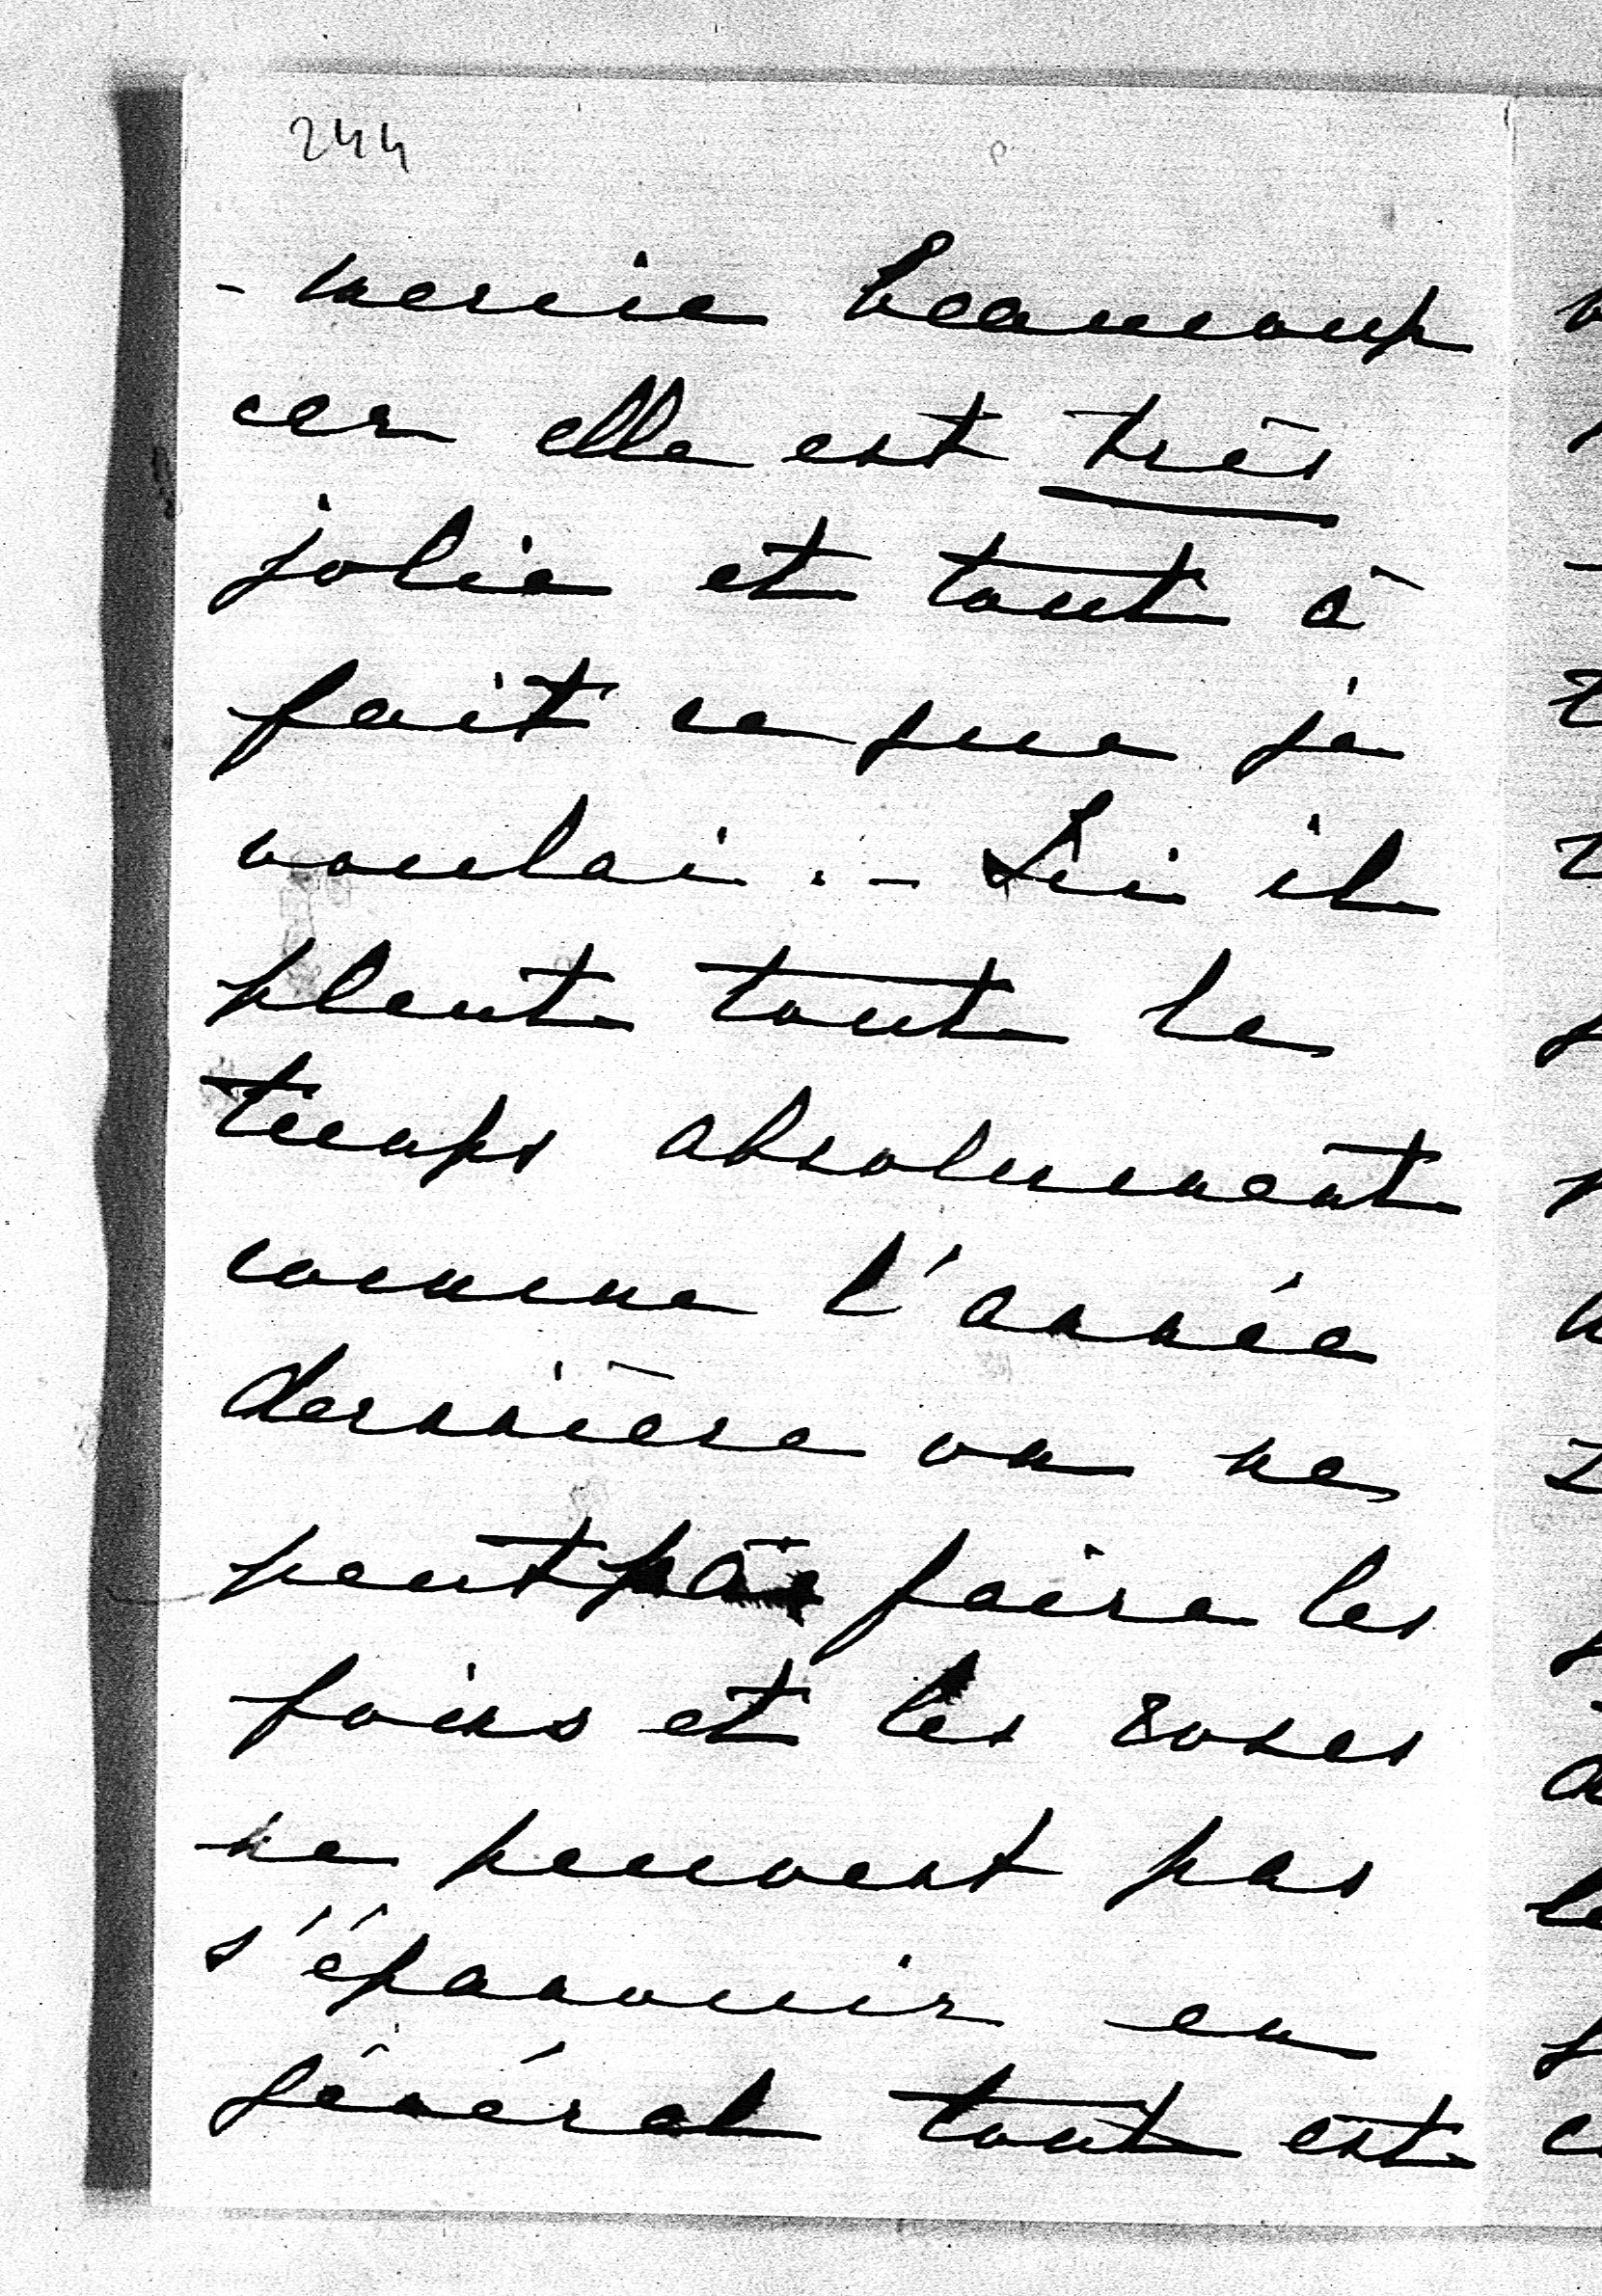 244
- mercie beaucoup
car elle est très
jolie et tout à
fait ce que je
voulai. - Ici il
pleut tout le
temps absolument
comme l'année
dernière on ne
peut pas faire les
foins et les roses
ne peuvent pas
s'épanouir en
général tout est